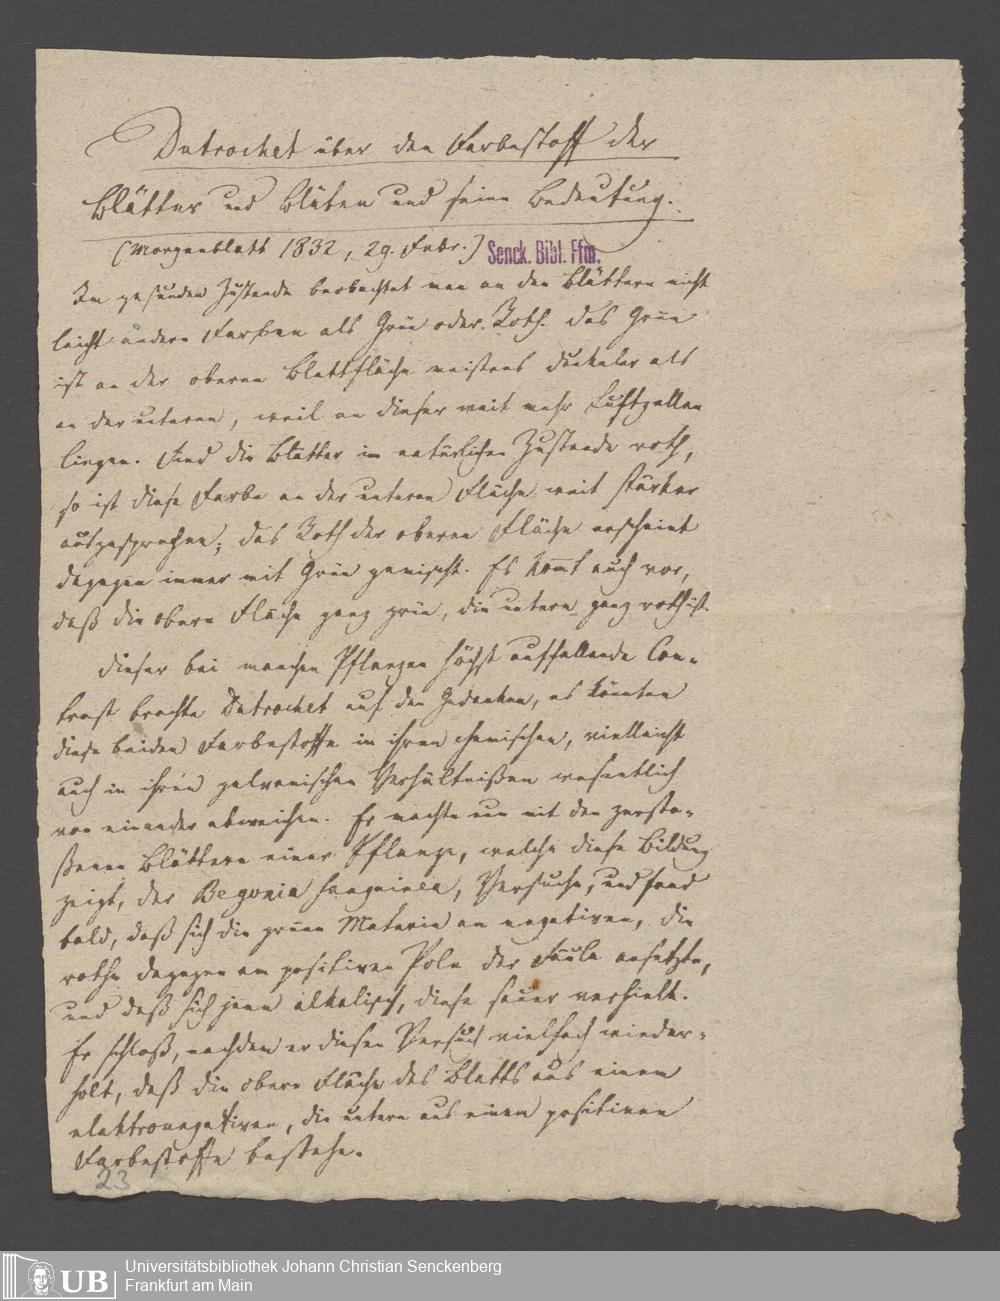 Dutrochet über den Farbestoff der
Blätter und Blüten und seine Bedeutung.
(Morgenblatt 1832, 29. Febr.)
Senck. Bibl. Ffm.
Im gesunden Zustande beobachtet man an den Blättern nicht
leicht andere Farben als Grün oder Roth. Das Grün
ist an der oberen Blattfläche meistens dunkeler als
an der unteren, weil an dieser weit mehr Luftzellen
liegen. Sind die Blätter im natürlichen Zustande roth,
so ist diese Farbe an der unteren Fläche weit stärker
ausgesprochen; das Roth der oberen Fläche erscheint
dagegen immer mit Grün gemischt. Es kom̅t auch vor,
daß die obere Fläche ganz grün, die untere ganz roth ist.
Dieser bei manchen Pflanzen höchst auffallende Con-
trast brachte Dutrochet auf den Gedanken, es könnten
diese beiden Farbestoffe in ihren chemischen, vielleicht
auch in ihren galvanischen Verhältnißen wesentlich
von einander abweichen. Er machte nun mit den zersto-
ßenen Blättern einer Pflanze, welche diese Bildung
zeigt, der Begonia sanguinea, Versuche, und fand
bald, daß sich die grüne Materie am negativen, die
rothe dagegen am positiven Pole der Säule ansetzte,
und daß sich jene alkalisch, diese sauer verhielt.
Er schloß, nachdem er diesen Versuch vielfach wieder-
holt, daß die obere Fläche des Blatts aus einem
elektronegativen, die untere aus einem positiven
Farbestoffe bestehe.
23
UB
Universitätsbibliothek Johann Christian Senckenberg
Frankfurt am Main